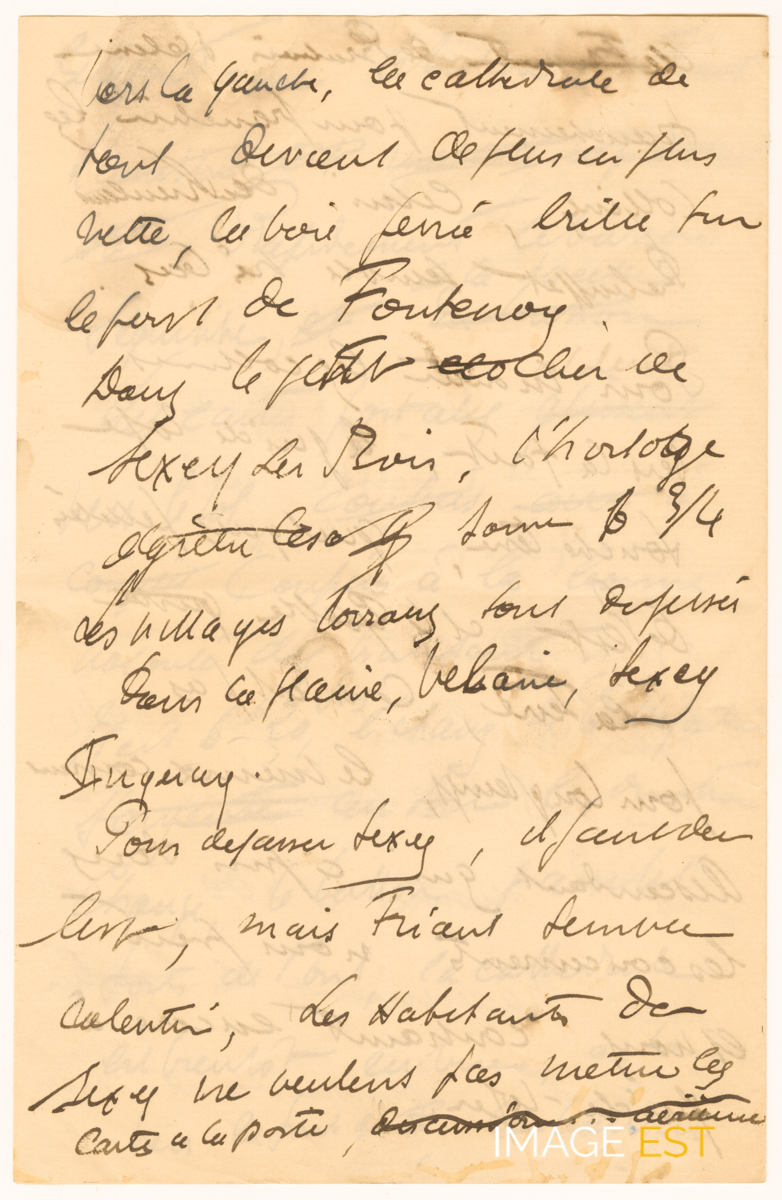 Vers la gauche, la cathédrale de
Toul devient de plus en plus
nette, la voie ferrée, brille sur
le pont de Fontenoy
Dans le petit clocher de
Sexey les Bois, l'horloge
sonne 6 3/4
Les villages lorrains sont
dans la plaine, Velaine, Sexey
Fingeray.
Pour depasser Sexey, il faut du
lest, mais Friant semble
ralentir, Les Habitants de
Sexey ne veulent pas mettre les
cartes a la poste, discussion... aérienne
IMAGE EST